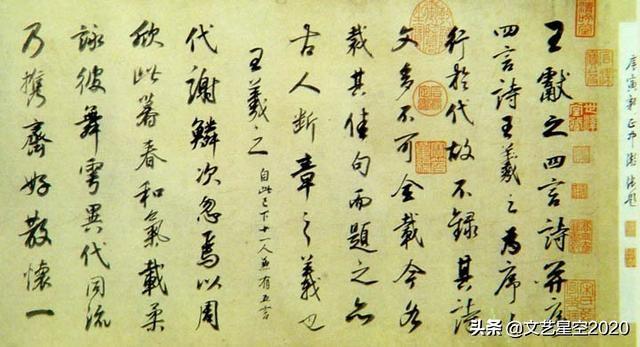 王獻之四言詩并序
四言詩王羲之為序
行於代故不錄其詩
文多不可全載今各
裁其佳句而題之亦
古人斷章之義也
王羲之 自此已下十一人並有五言
代謝鱗次忽焉以周
欣此暮春和氣載柔
詠彼舞雩異代同流
乃攜齊好散懷一
头条 @文艺星空2020